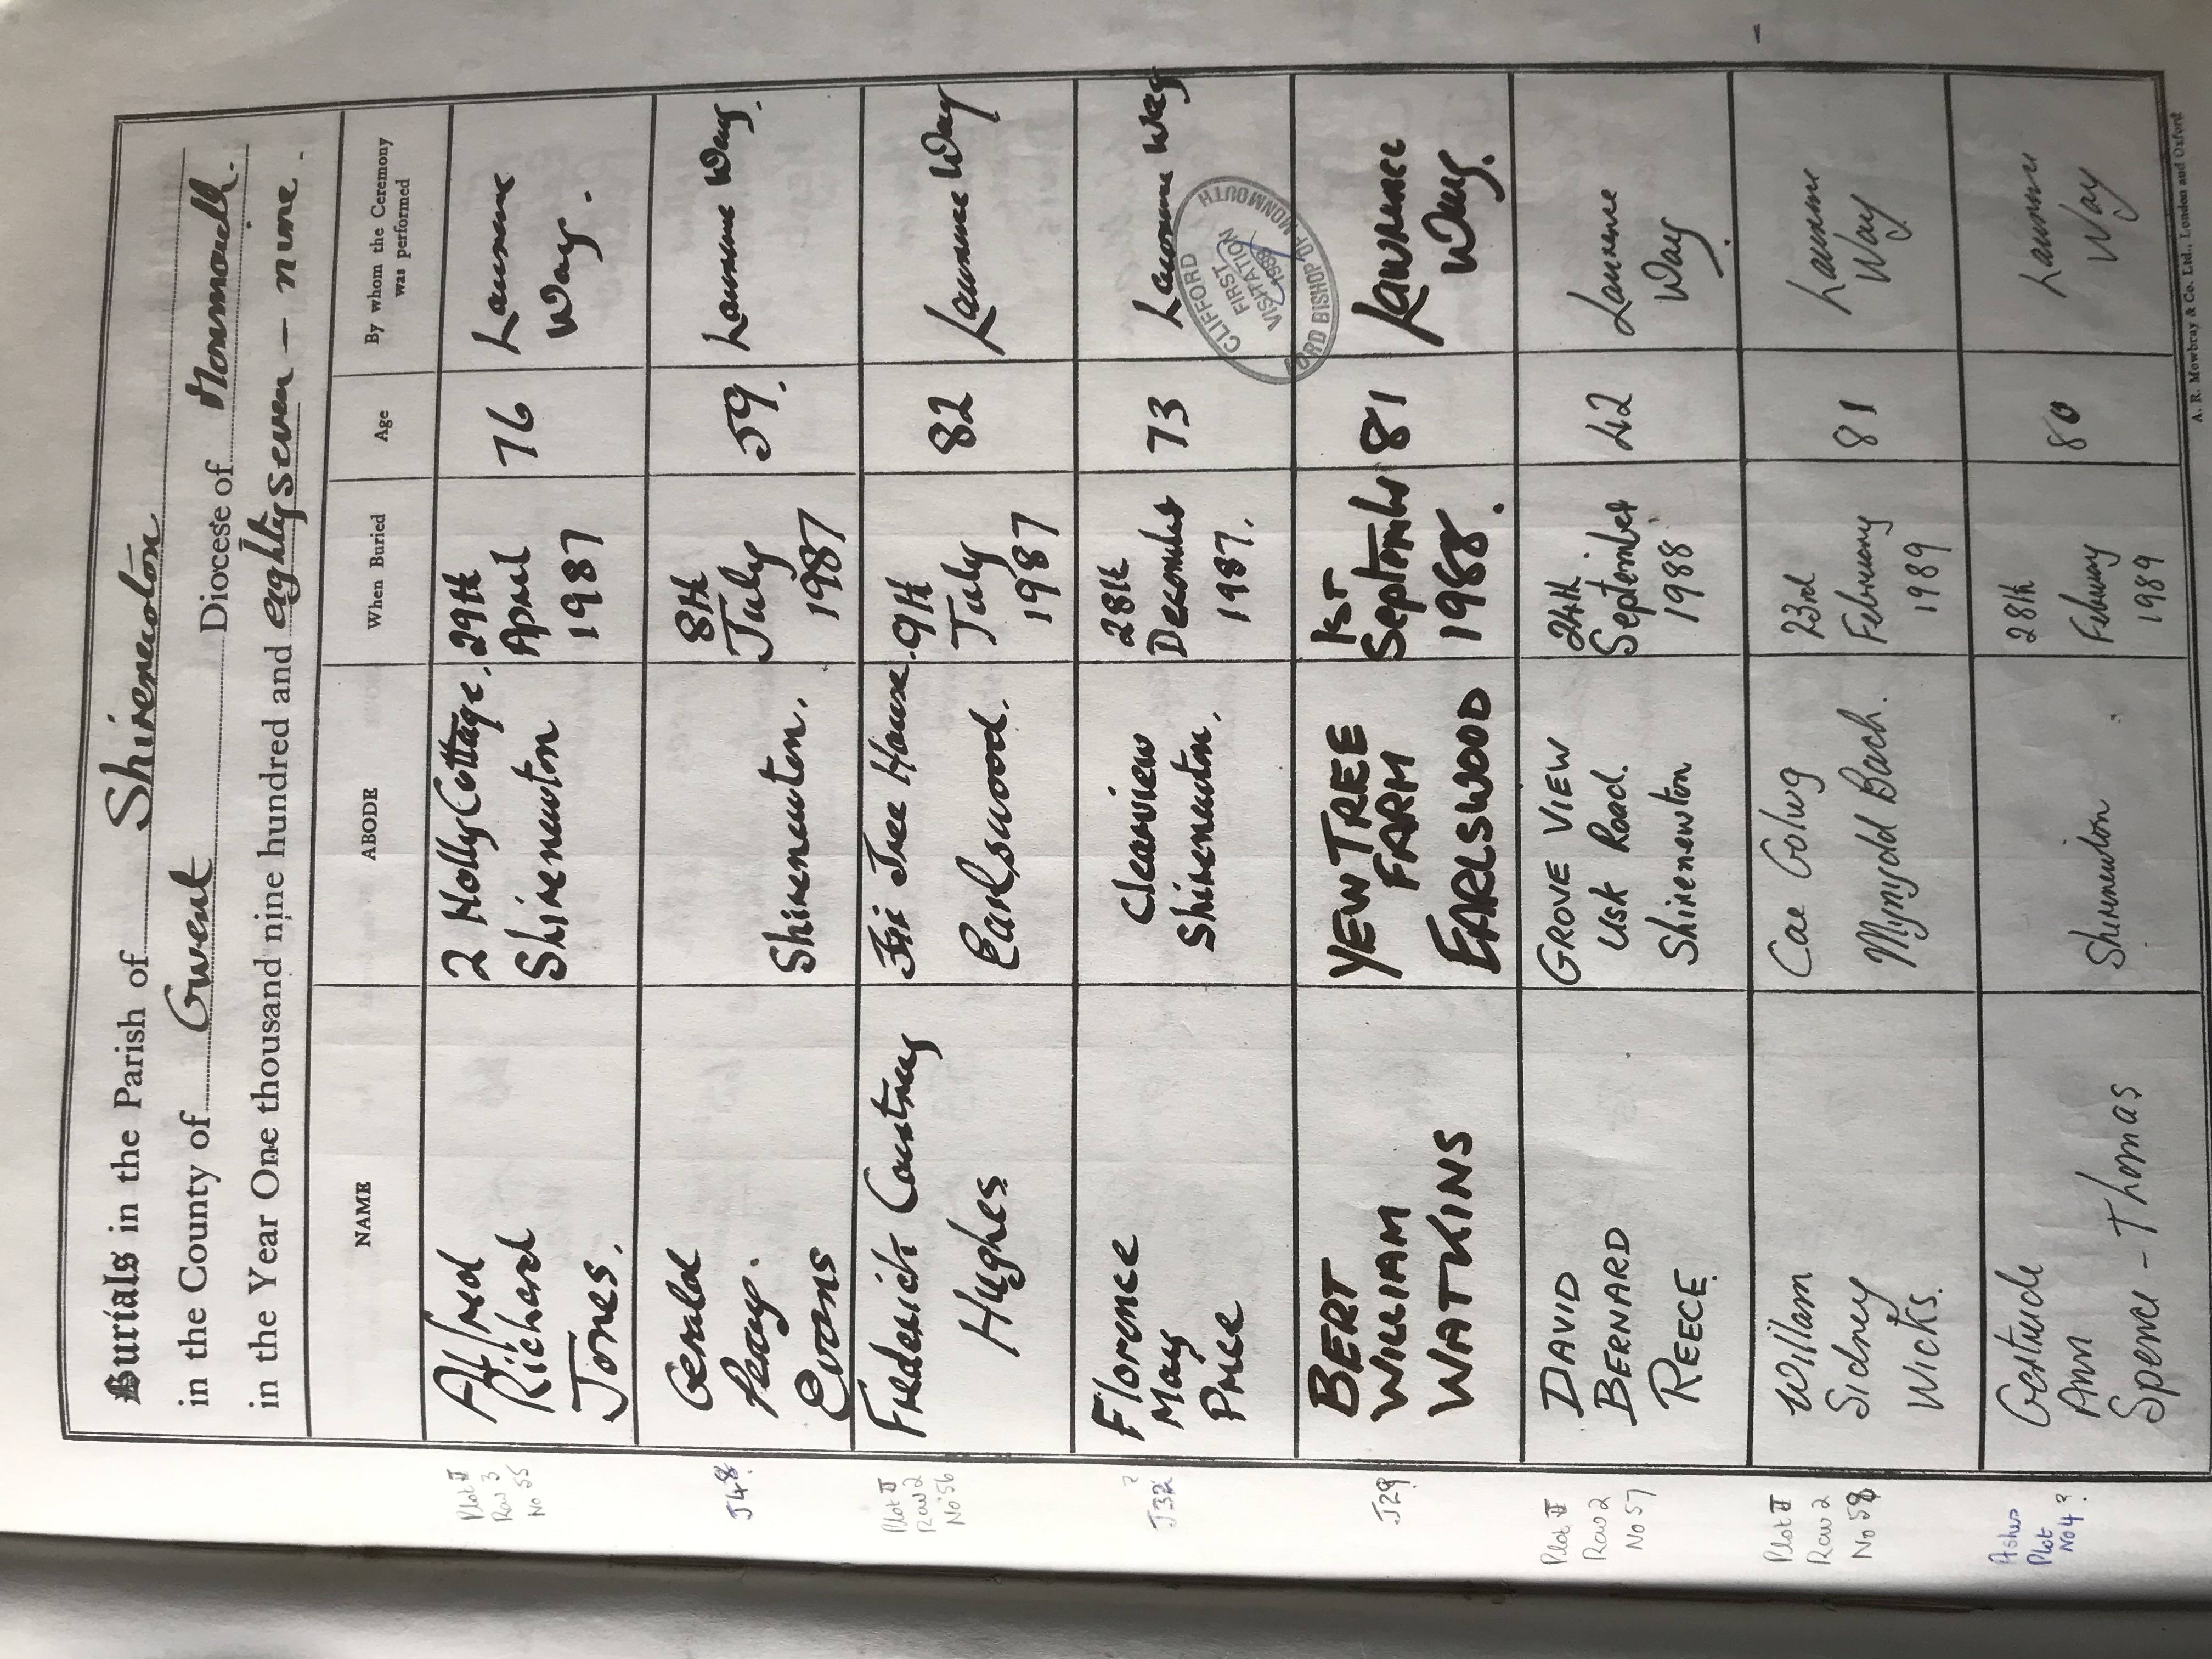 Burials in the Parish of Shirenewton
in the County of Gwent Diocese of Monmouth.
in the Year One thousand nine hundred and eightyseven - nine.
NAME ABODE When Buried Age By whom the Ceremony was performed
Plot II
Row 3
No 55
Alfred
Richard
Jones.
2 Holly Cottage,
Shirenewton
29th
April
1987
76
Laurence
Way.
J48
Gerald
Percy.
Evans
Shirenewton.
8th
July
1987
59.
Laurence Way.
Plot II
Row 2
No 56
Frederick Courtney
Hughes
Fir Tree House.
Earlswood.
9th
July
1987
82
Laurence Way
J32 ?
Florence
May
Price
Clearview
Shirenewton.
28th
December
1987.
73
Laurence Way
CLIFFORD
FIRST
VISITATION
LORD BISHOP OF MONMOUTH
J29?
BERT
WILLIAM
WATKINS
YEW TREE
FARM
EARLSWOOD
1ST
September
1988.
81
Lawrence
Way.
Plot II
Row 2
No 57
DAVID
BERNARD
REECE.
GROVE VIEW
Usk Road.
Shirenewton
24th
September
1988.
42
Laurence
Way.
Plot II
Row 2
No 58
William
Sidney
Wicks.
Cae Golwg
Mynydd Bach.
23rd
February
1989
81
Laurence
Way
Ashes
Plot
No 4?
Gertrude
Ann
Spence - Thomas
Shirenewton
28th
February
1989
80
Laurence
Way
A. R. Mowbray & Co. Ltd., London and Oxford